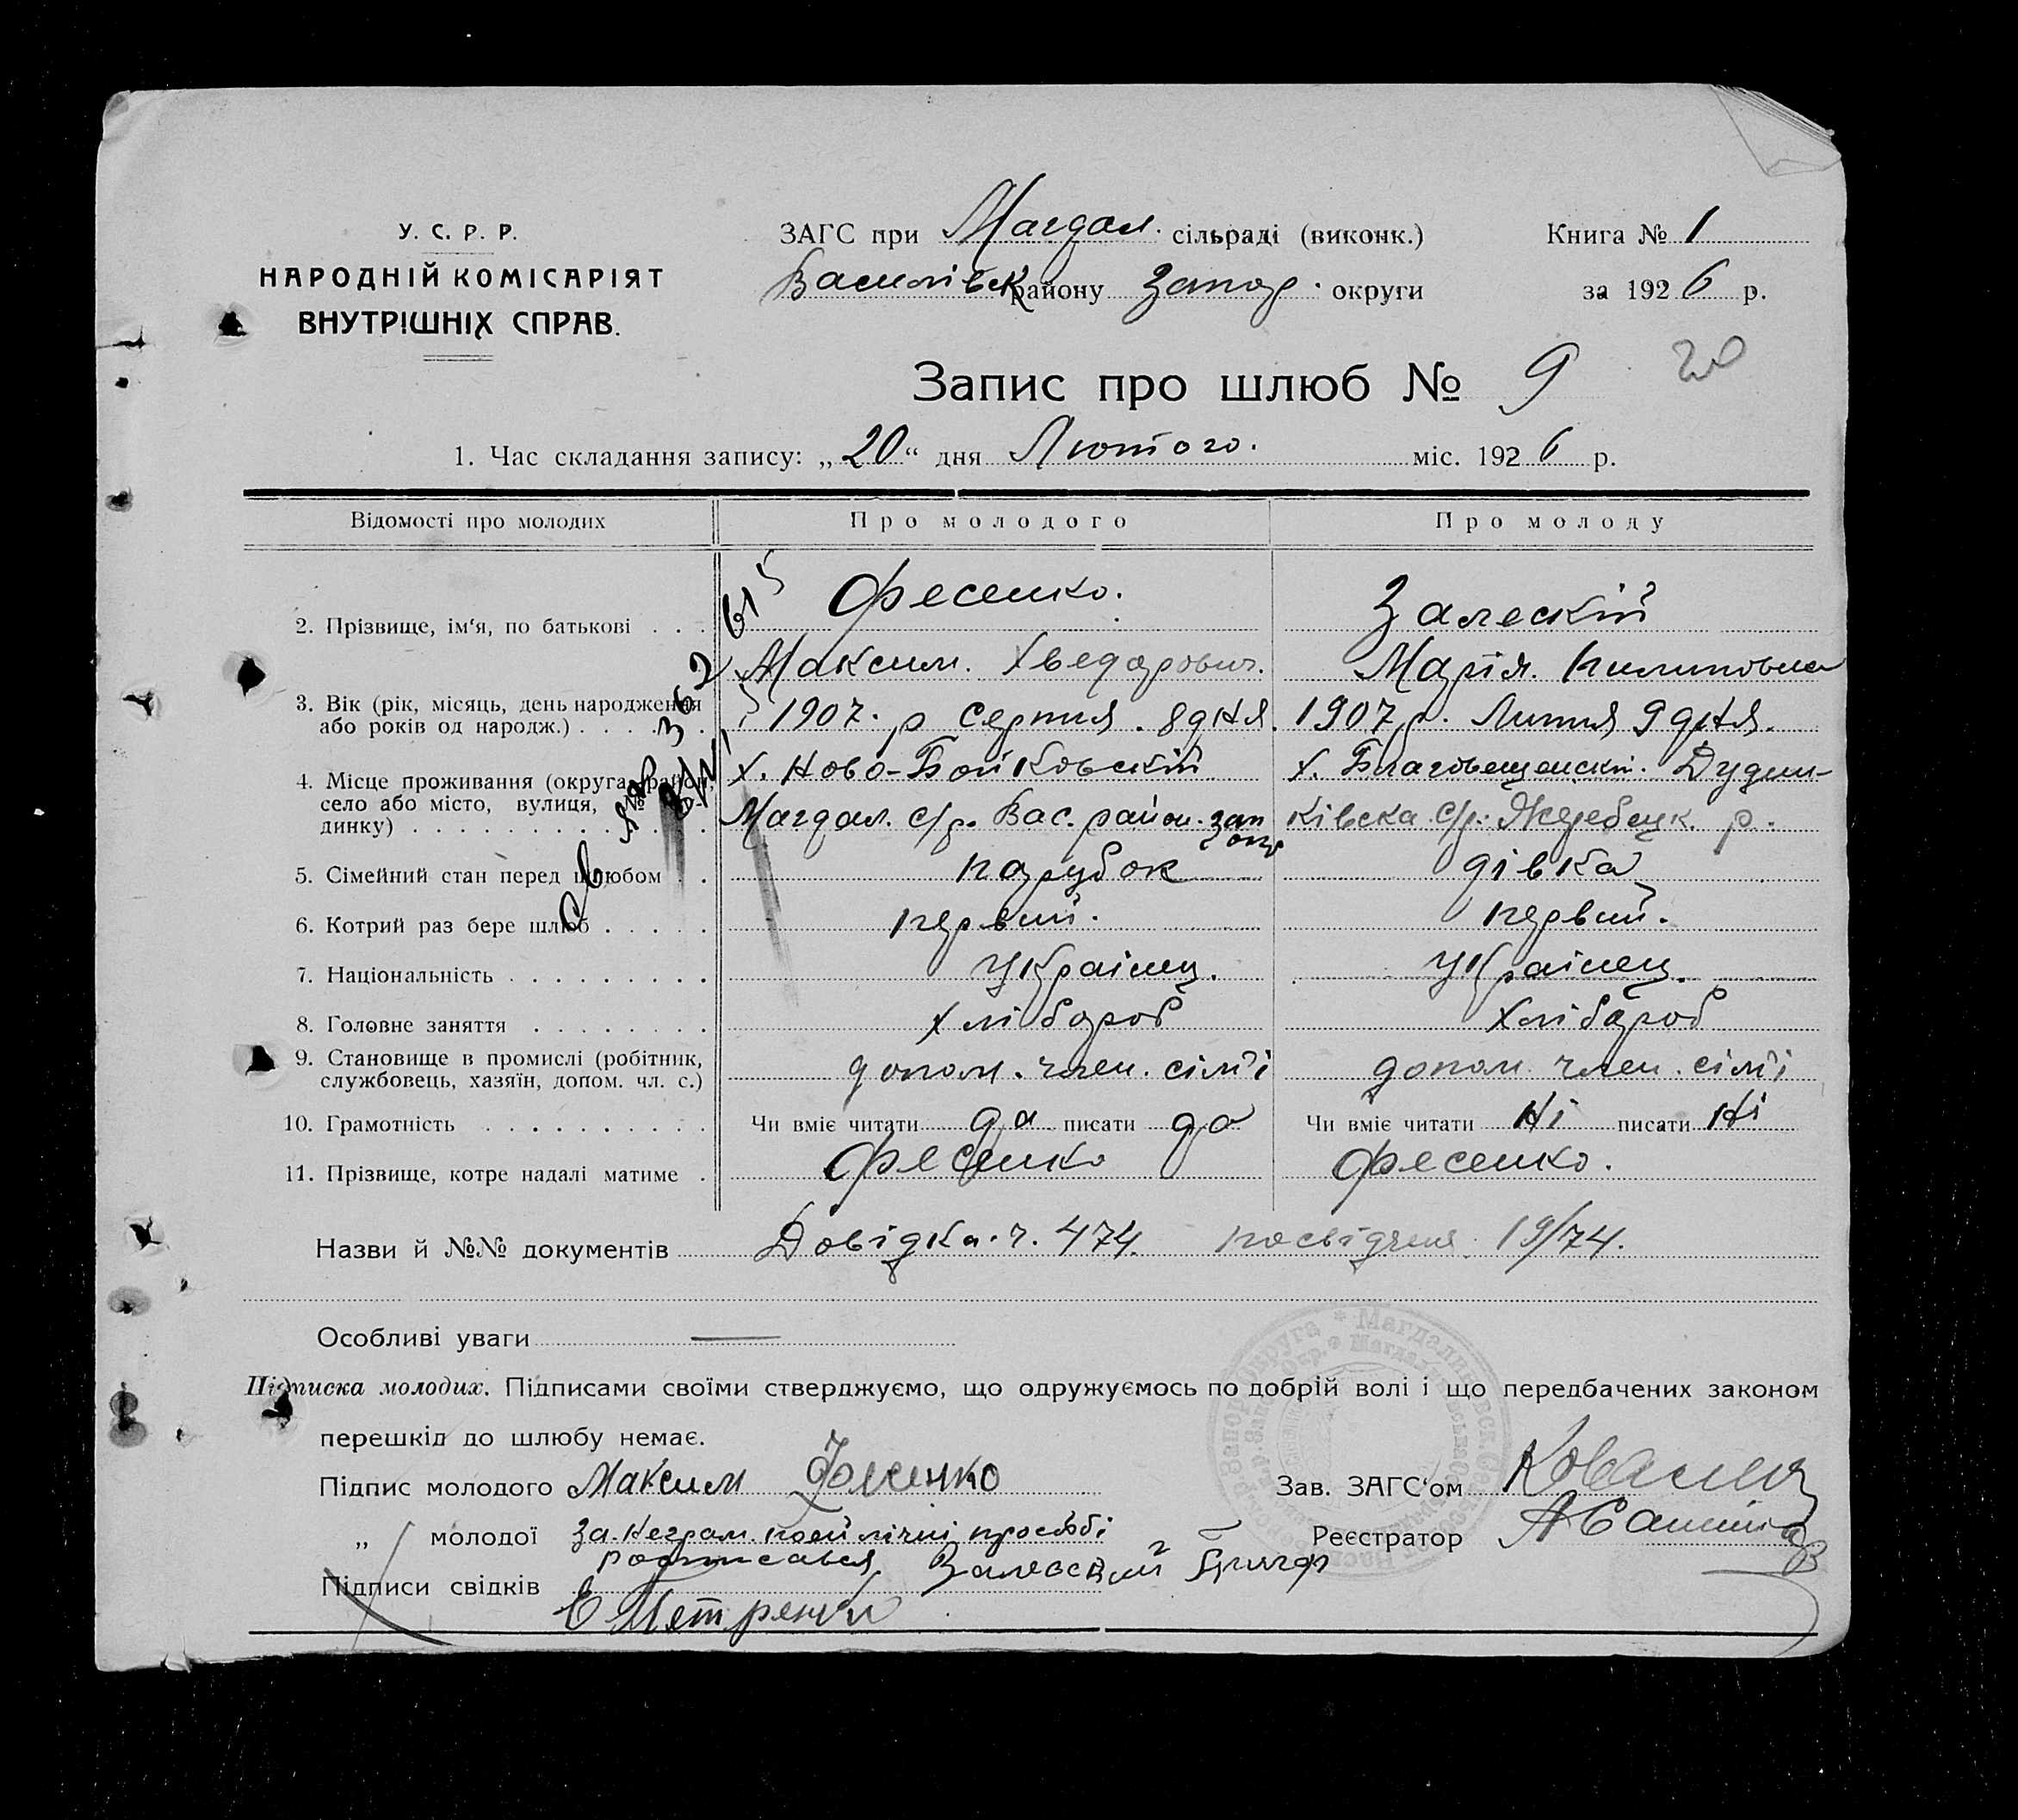 У. С. Р. Р.
НАРОДНІЙ КОМІСАРІЯТ
ВНУТРІШНІХ СПРАВ.
ЗАГС при Магдал. сільраді (виконк.)
Василівськ району Запор. округи
Книга № 1
за 1926 р.
Запис про шлюб № 9
20
1. Час складання запису: „20“ дня Лютого. міс. 1926 р.
Відомості про молодих Про молодого Про молоду
2. Прізвище, ім‘я, по батькові . . . Фесенко. Залескій
Максим. Хведорович. Марія. Пилиповна
3. Вік (рік, місяць, день народження або років од народж.) . . . . . 1907. р Серпня. 8 дня. 1907 р. Липня 9 дня.
4. Місце проживання (округа, район, село або місто, вулиця, № будинку) . . . х. Ново-Бойковський х. Благовещенский. Дудни-
Магдал. с/р. Вас. район. Зап окр ківска с/р. Жеребецк. р.
5. Сімейний стан перед шлюбом . . парубок дівка
6. Котрий раз бере шлюб . . . . . первий. первий.
7. Національність . . . . . . . . . Українец. Українец.
8. Головне заняття . . . . . . . . Хлібороб Хлібороб
9. Становище в промислі (робітник, службовець, хазяїн, допом. чл. с.) допом. член. сімʼі допом. член. сімʼі
10. Грамотність . . . . . . . . . . Чи вміє читати да писати да Чи вміє читати Ні писати Ні
11. Прізвище, котре надалі матиме . Фесенко Фесенко.
Назви й №№ документів Довідка. ч. 474. посвідченя. 19/74.
Особливі уваги —
Підписка молодих. Підписами своїми стверджуємо, що одружуємось по добрій волі і що передбачених законом
перешкід до шлюбу немає.
Підпис молодого Максим Фесенко
Зав. ЗАГС‘ом
„ молодої За. Неграм. по ей лічні просьбі
росписався Залесский
Реєстратор
Підписи свідків
Е Петренко